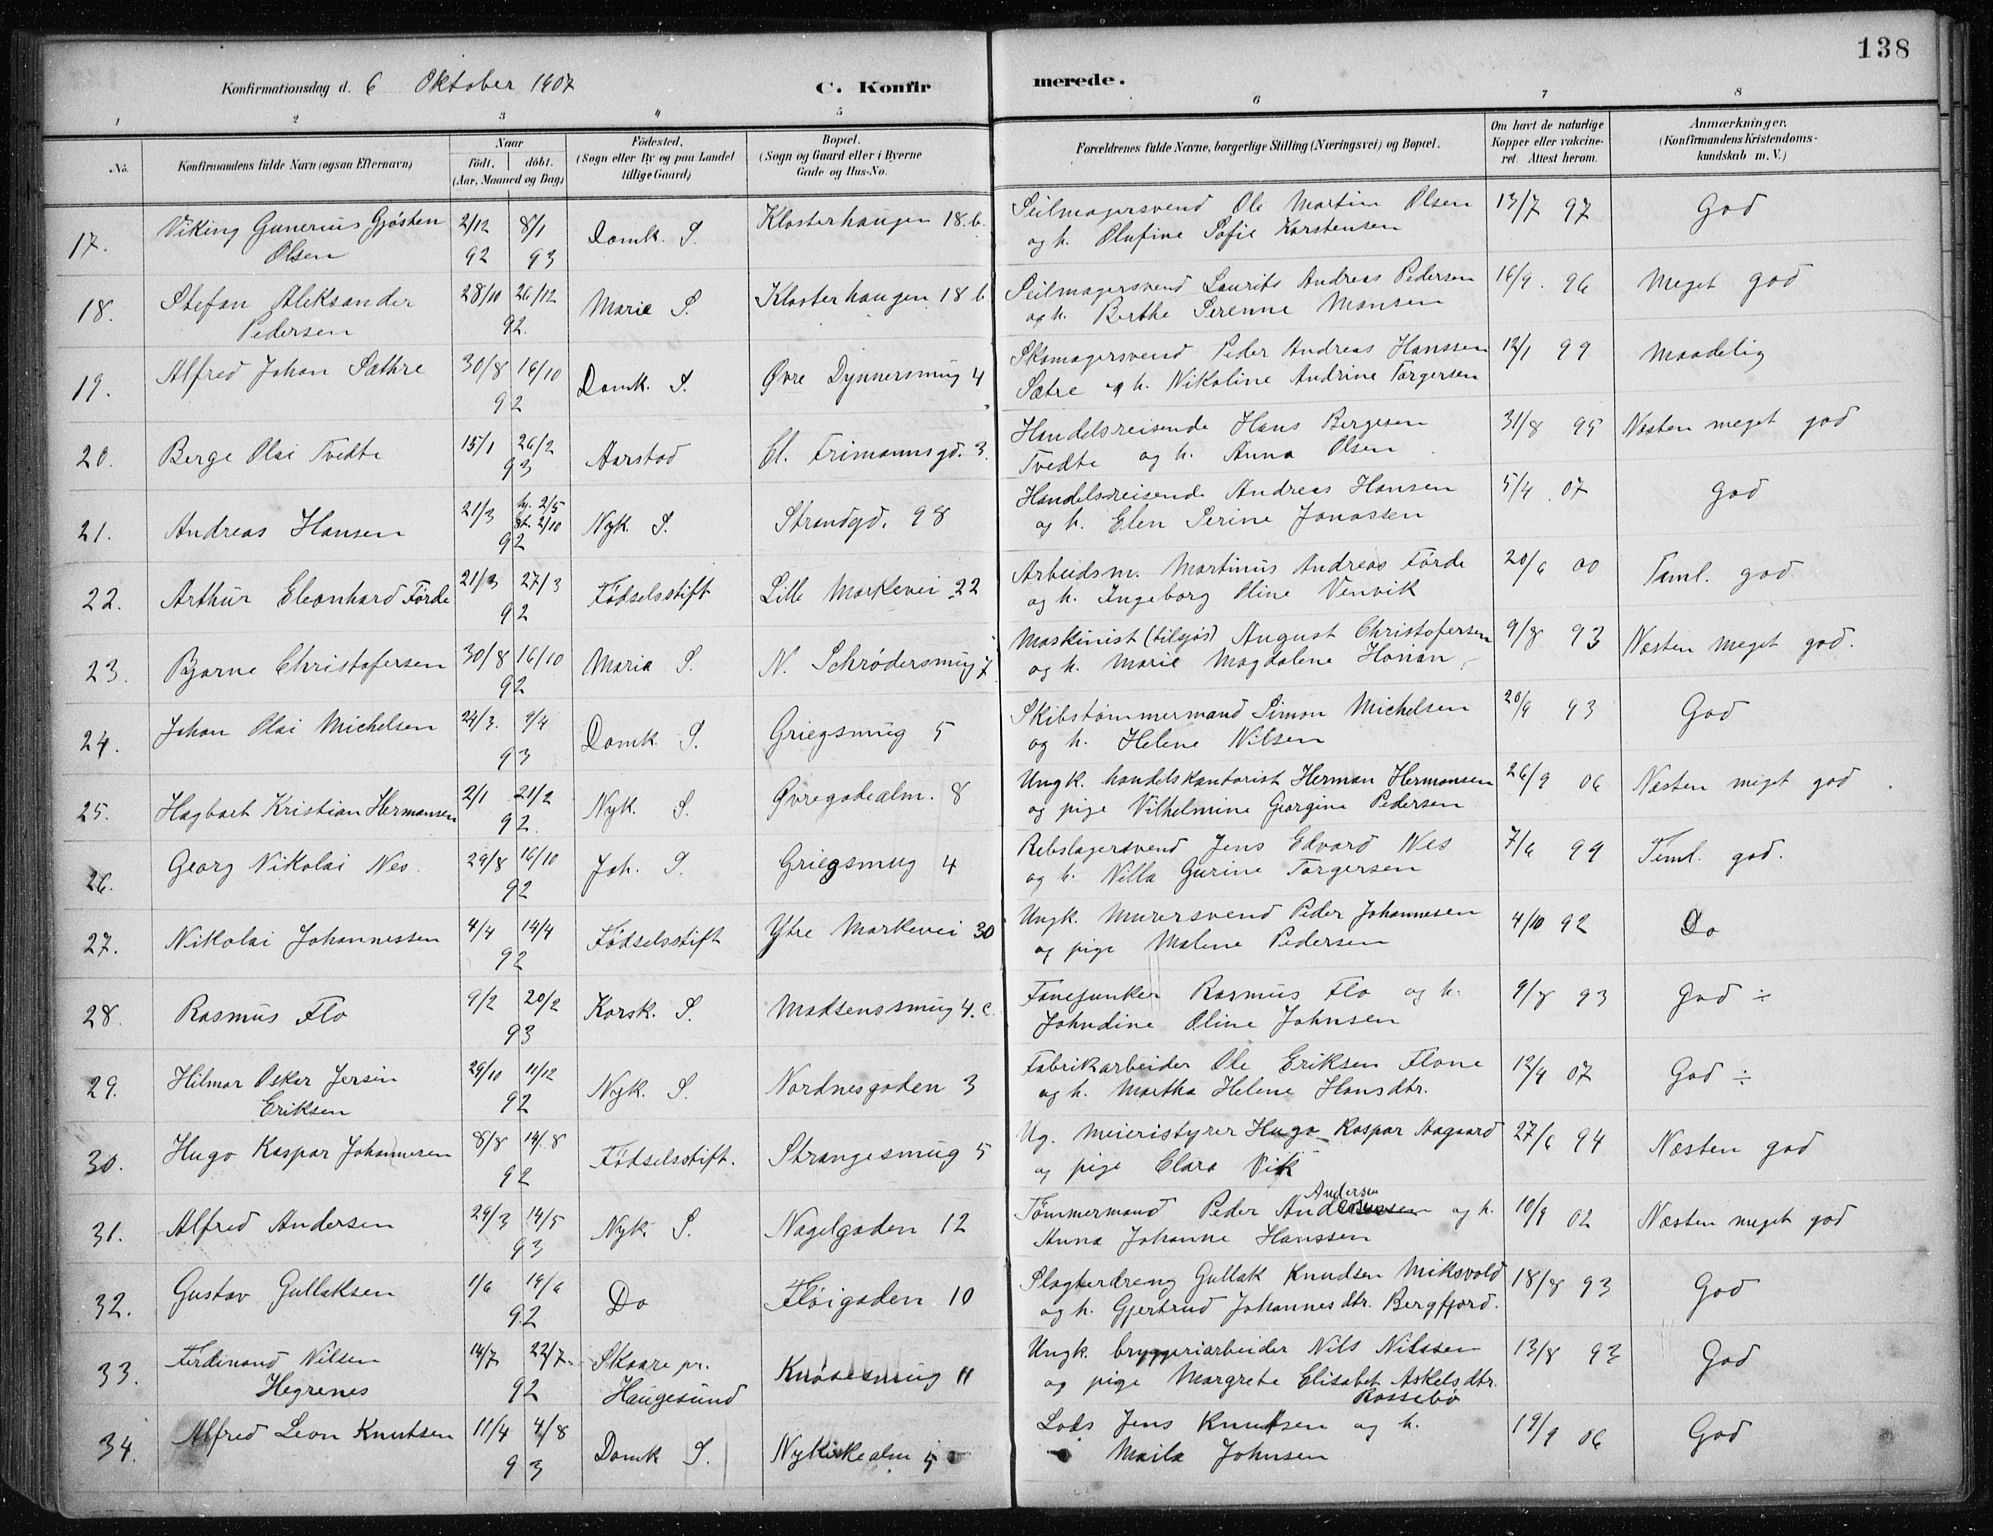 138
Konfirmationsdag d. 6 Oktober 1907 C. Konfirmerede.
1 2 3 4 5 6 7 8
No. Konfirmandens fulde Navn (ogsaa Efternavn) Naar födt. döbt. (Aar, Maaned og Dag) Födested. (Sogn eller By og paa Landet tillige Gaard) Bopæl. (Sogn og Gaard eller i Byerne Gade og Hus-No. Forældrenes fulde Navne, borgerlige Stilling (Næringsvei) og Bopæl. Om havt de naturlige Kopper eller vakcineret. Attest herom. Anmærkninger, (Konfirmandens Kristendomskundskab m. V.)
17. Viking Gunerius Gjøsten 2/12 8/1 Domk. S. Klosterhaugen 18.b. Seilmagersvend Ole Martin Olsen 13/7 97 God
Olsen 92 93 og h. Olufine Sofie Karstensen
18. Stefan Aleksander 28/10 26/12 Marie S. Klosterhaugen 18 b Seilmagersvend Laurits Andreas Pedersen 16/9. 96 Meget god
Pedersen 92. og h. Berthe Serenne Monsen
19. Alfred Johan Sæthre 30/8 16/10 Domk. S. Øvre Dynnersmug 4 Skomagersvend Peder Andreas Hanssen 12/1 99 Maadelig
92 Sætre og h. Nikoline Andrine Torgersen
20. Berge Olai Tvedte 15/1 26/2 Aarstad Cl. Frimannsgd. 3. Handelsreisende Hans Bergesen 31/8 95 Næsten meget god
93 Tvedte og h. Anna Olsen
21. Andreas Hansen 21/3 hj. 2/5 St. 2/10 Nyk. S. Strandgd. 98 Handelsreisende Andreas Hansen 5/4 07 God
92 og h. Elen Serine Jonassen
22. Arthur Eleonhard Førde 21/3 27/3 Fødselsstift Lille Markevei 22 Arbeidsm. Martinus Andreas Førde 20/6 00 Taml. god
92 og h. Ingeborg Oline Venvik
23. Bjarne Christofersen 30/8 16/10 Maria S. N. Schrødersmug 7 Maskinist (tilsjøs) August Christofersen 9/8 93 Næsten meget god.
92 og h. Marie Magdalene
24. Johan Olai Michelsen 24/3. 9/4 Domk. S. Griegsmug 5 Skibstømmermand Simon Michelsen 20/9 93 God
93 og h. Helene Nilsen
25. Hagbart Kristian Hermansen 2/1 21/2 Nyk. S. Øvregadealm. 8 Ungk. handelskontorist Herman Hermansen 26/9 06 Næsten meget god
92. og pige Vilhelmine Georgine Pedersen
26. Georg Nikolai Nes. 29/8 16/10 Joh. S. Griegsmug 4 Rebslagersvend Jens Edvard Nes 7/6 99 Teml. god.
92 og h. Nilla Gurine Torgersen
27. Nikolai Johannessen 4/4 14/4 Fødselsstift Ytre Markevei 30 Ungk. Murersvend Peder Johannesen 4/10 92 Do
92 og pige Malene Pedersen
28. Rasmus Flo 9/2 20/2 Korsk. S. Madsenssmug 4.c. Fanejunker Rasmus Flo og h. 9/8 93 God ÷
93 Johndine Oline Johnsen
29. Hilmar Oskar Jersin 29/10 11/12 Nyk. S. Nordnesgaden 3 Fabrikarbeider Ole Eriksen Flone 12/4 07 God ÷
Eriksen 92 og h. Martha Helene Hansdtr.
30. Hugo Kaspar Johannesen 8/8 14/8 Fødselsstift. Strangesmug 5 Ug. Meieristyrer Hugo Kaspar Aagaard 27/6 94 Næsten god
92 og pige Clara Vik
31. Alfred Andersen 29/3 14/5 Nyk. S. Nagelgaden 12 Tømmermand Peder Andersen og h. 10/9 02 Næsten meget god
93 Anna Johanne Hanssen
32. Gustav Gullaksen 1/6 19/6 Do Fløigaden 10 Slagterdreng Gullak Knudsen Miksvold 18/8 93 God
92 og h. Gjertrud Johannesdtr. Bergfjord.
33. Ferdinand Nilsen 14/7 22/7 Skaare pr. Knøsesmug 11 Ungk. bryggeriarbeider Nils Nilssen 13/8 93 God
Hegrenes 92 Haugesund og pige Margrete Elisabet Askelsdtr. Rossebø
34. Alfred Leon Knutsen 11/4 4/8 Domk S. Nykirkealm 5 Lods Jens Knutsen og h. 19/9 06 God
93 Maila Johnsen